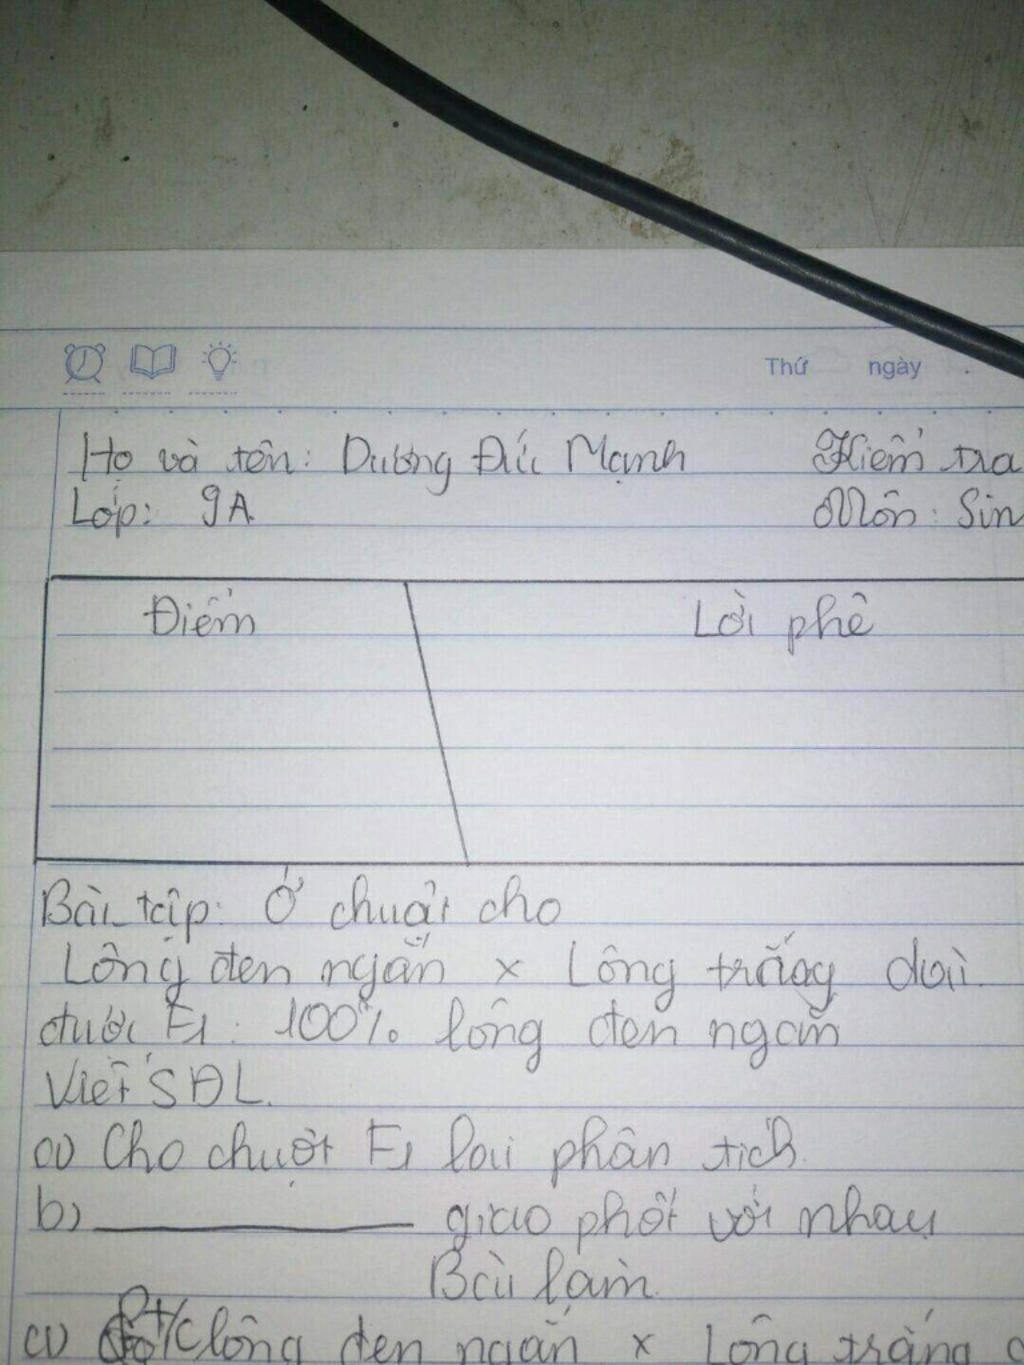 Thứ ngày
Họ và tên: Dương Đức Mạnh Kiểm tra
Lớp: 9A Môn: Sin
Điểm Lời phê
Bài tập: Ở chuột cho
Lông đen ngắn x Lông trắng dài
được F1: 100% lông đen ngắn
Viết SĐL.
a) Cho chuột F1 lai phân tích.
b) giao phối với nhau
Bài làm
a) Pt/c lông đen ngắn x Lông trắng